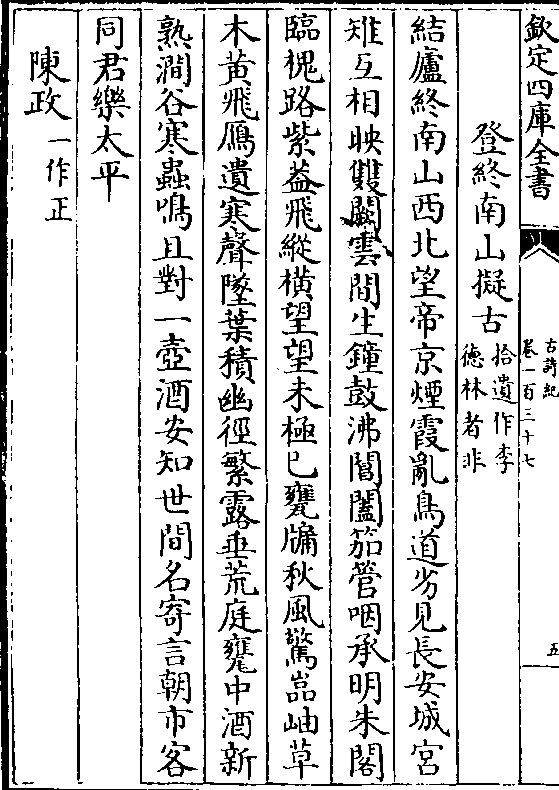 欽定四庫全書
古詩紀
卷一百三十七
五
登終南山擬古
拾遺作李
德林者非
結廬終南山西北望帝京煙霞亂鳥道劣見長安城宮
雉互相映雙闕雲間生鐘鼓沸閶闔笳管咽承明朱閣
臨槐路紫葢飛縱横望望未極已甕牖秋風驚嵓岫草
木黃飛鴈遺寒聲墜葉積幽徑繁露垂荒庭甕中酒新
熟澗谷寒蟲鳴且對一壺酒安知世間名寄言朝市客
同君樂太平
陳政
一作正